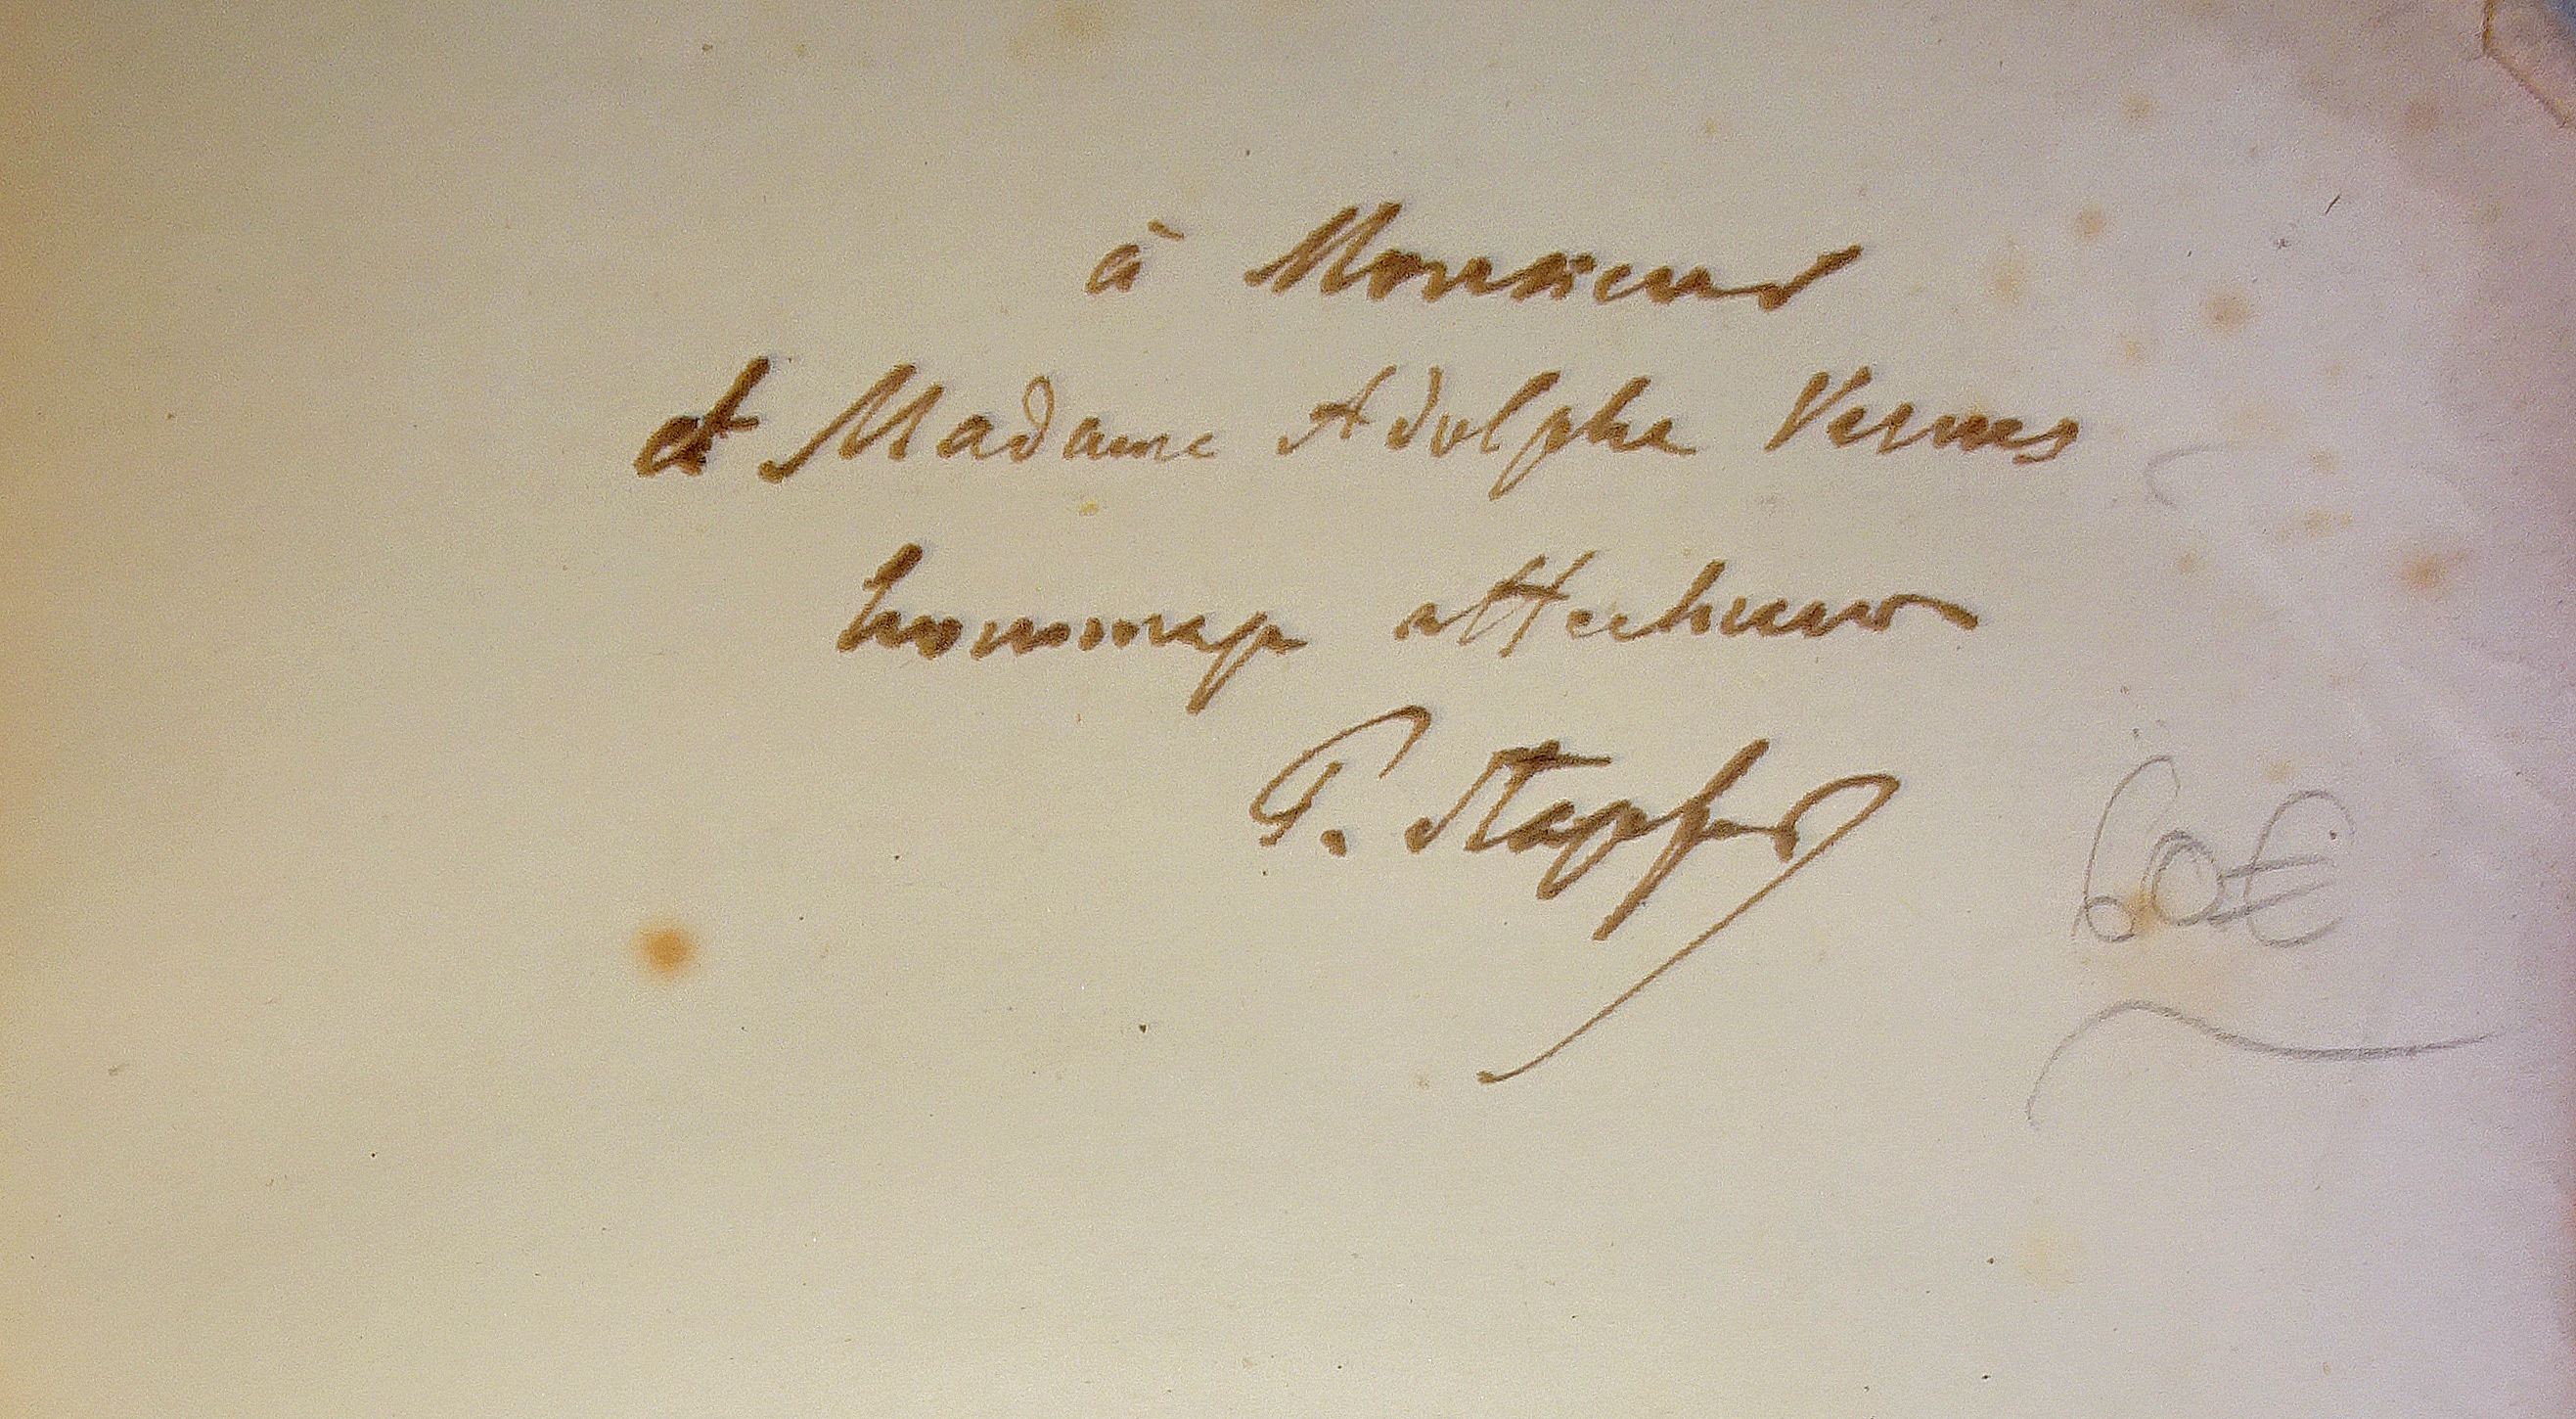 à Monsieur
et Madame Adolphe Vernes
hommage affectueux
P. Stapfer
60€